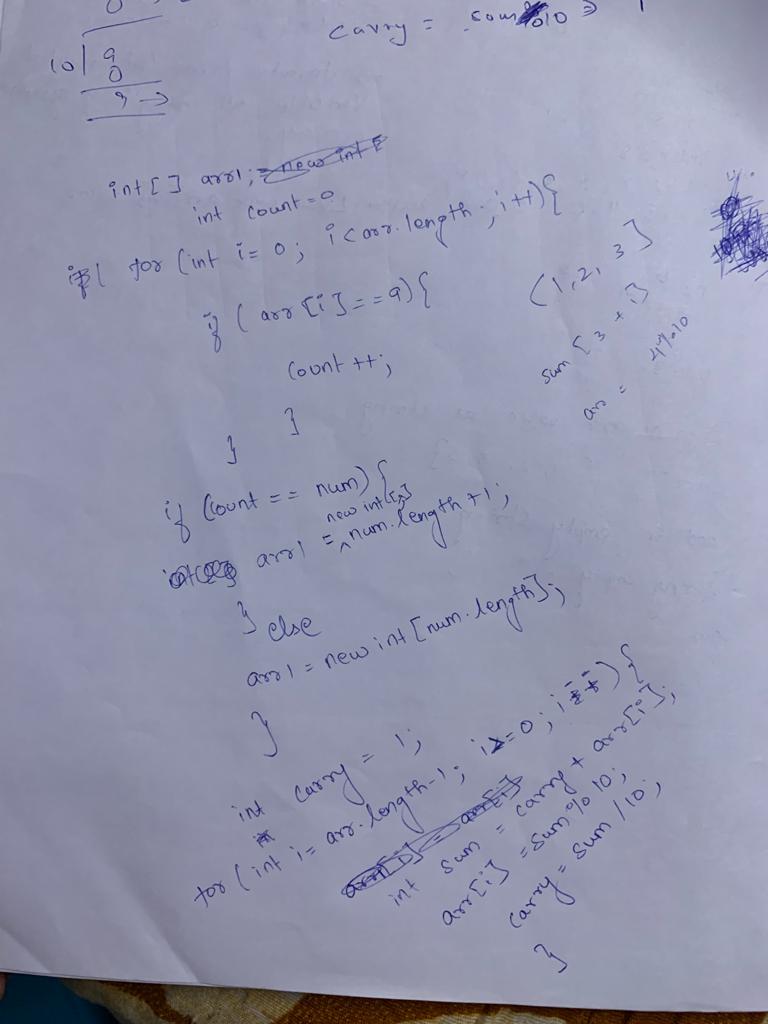 0
carry = sum%10 ⇒ 1
10 | 9
0
9 →
int[] arr1;
int count=0
for (int i= 0; i<arr.length; i++){
if (arr[i]==9){
count ++;
}
}
(1,2,3]
sum [3+1]
arr = 4%10
if (count == num) {
new int[]
arr1 = num.length+1;
} else
arr1 = new int[num.length];
}
int carry = 1;
for (int i= arr.length-1; i>=0; i--) {
int sum = carry + arr[i];
arr[i] = sum%10;
carry = sum/10;
}